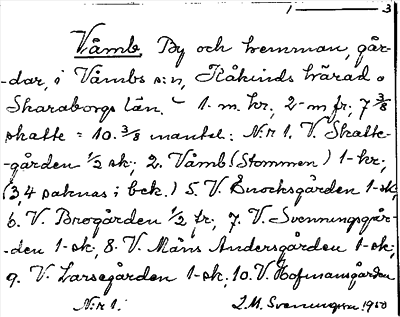 1 — 3
Våmb. By och hemman, går-
-dar, i Våmbs s:n, Kåkinds härad o
Skaraborgs län. – 1 - m. kr; 2 - m fr; 7 3/8
skatte = 10. 3/8 mantal: N:r 1. V. Skatte-
-gården 1/2 sk; 2. Våmb (Stommen) 1 - kr;
(3,4 saknas i bek.) 5. V. Enocksgården 1 - sk;
6. V. Brogården 1/2 fr; 7. V. Svenningsgår-
-den 1 - sk; 8. V. Måns Andersgården 1 - sk;
9. V. Larsegården 1 - sk; 10. V. Hofmansgården
N:r 1. J.M. Svenungson. 1950